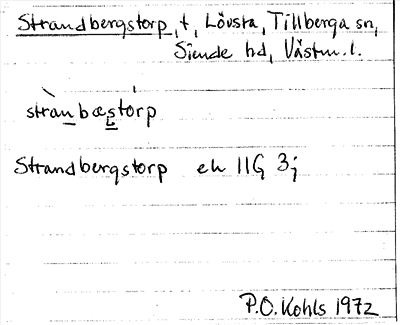 Strandbergstorp, t, Lövsta, Tillberga sn,
Siende hd, Västm. l.
stran bæstorp
Strandbergstorp ek 11G 3j
P.O. Kohls 1972